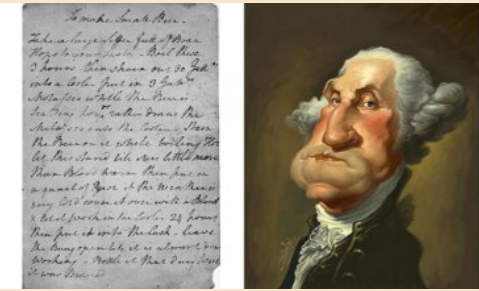 To make Small Beer
Take a large Siffer full of Bran
Hops to your Taste. Boil these
3 hours then strain out 30 Gall
into a Cooler put in 3 Gall
Molasses while the Beer is
Scalding hot rather draw the
Melasses into the Cooler & Strain
the Beer on it while boiling Hot
let this stand till it is little more
than Blood warm then put in
a quart of Yest if the Weather is
very Cold cover it over with a Blank
& let it work in the Cooler 24 hours
then put it into the Cask - leave
the Bung open till it is almost don
working - Bottle it that day Week
it was Brewed